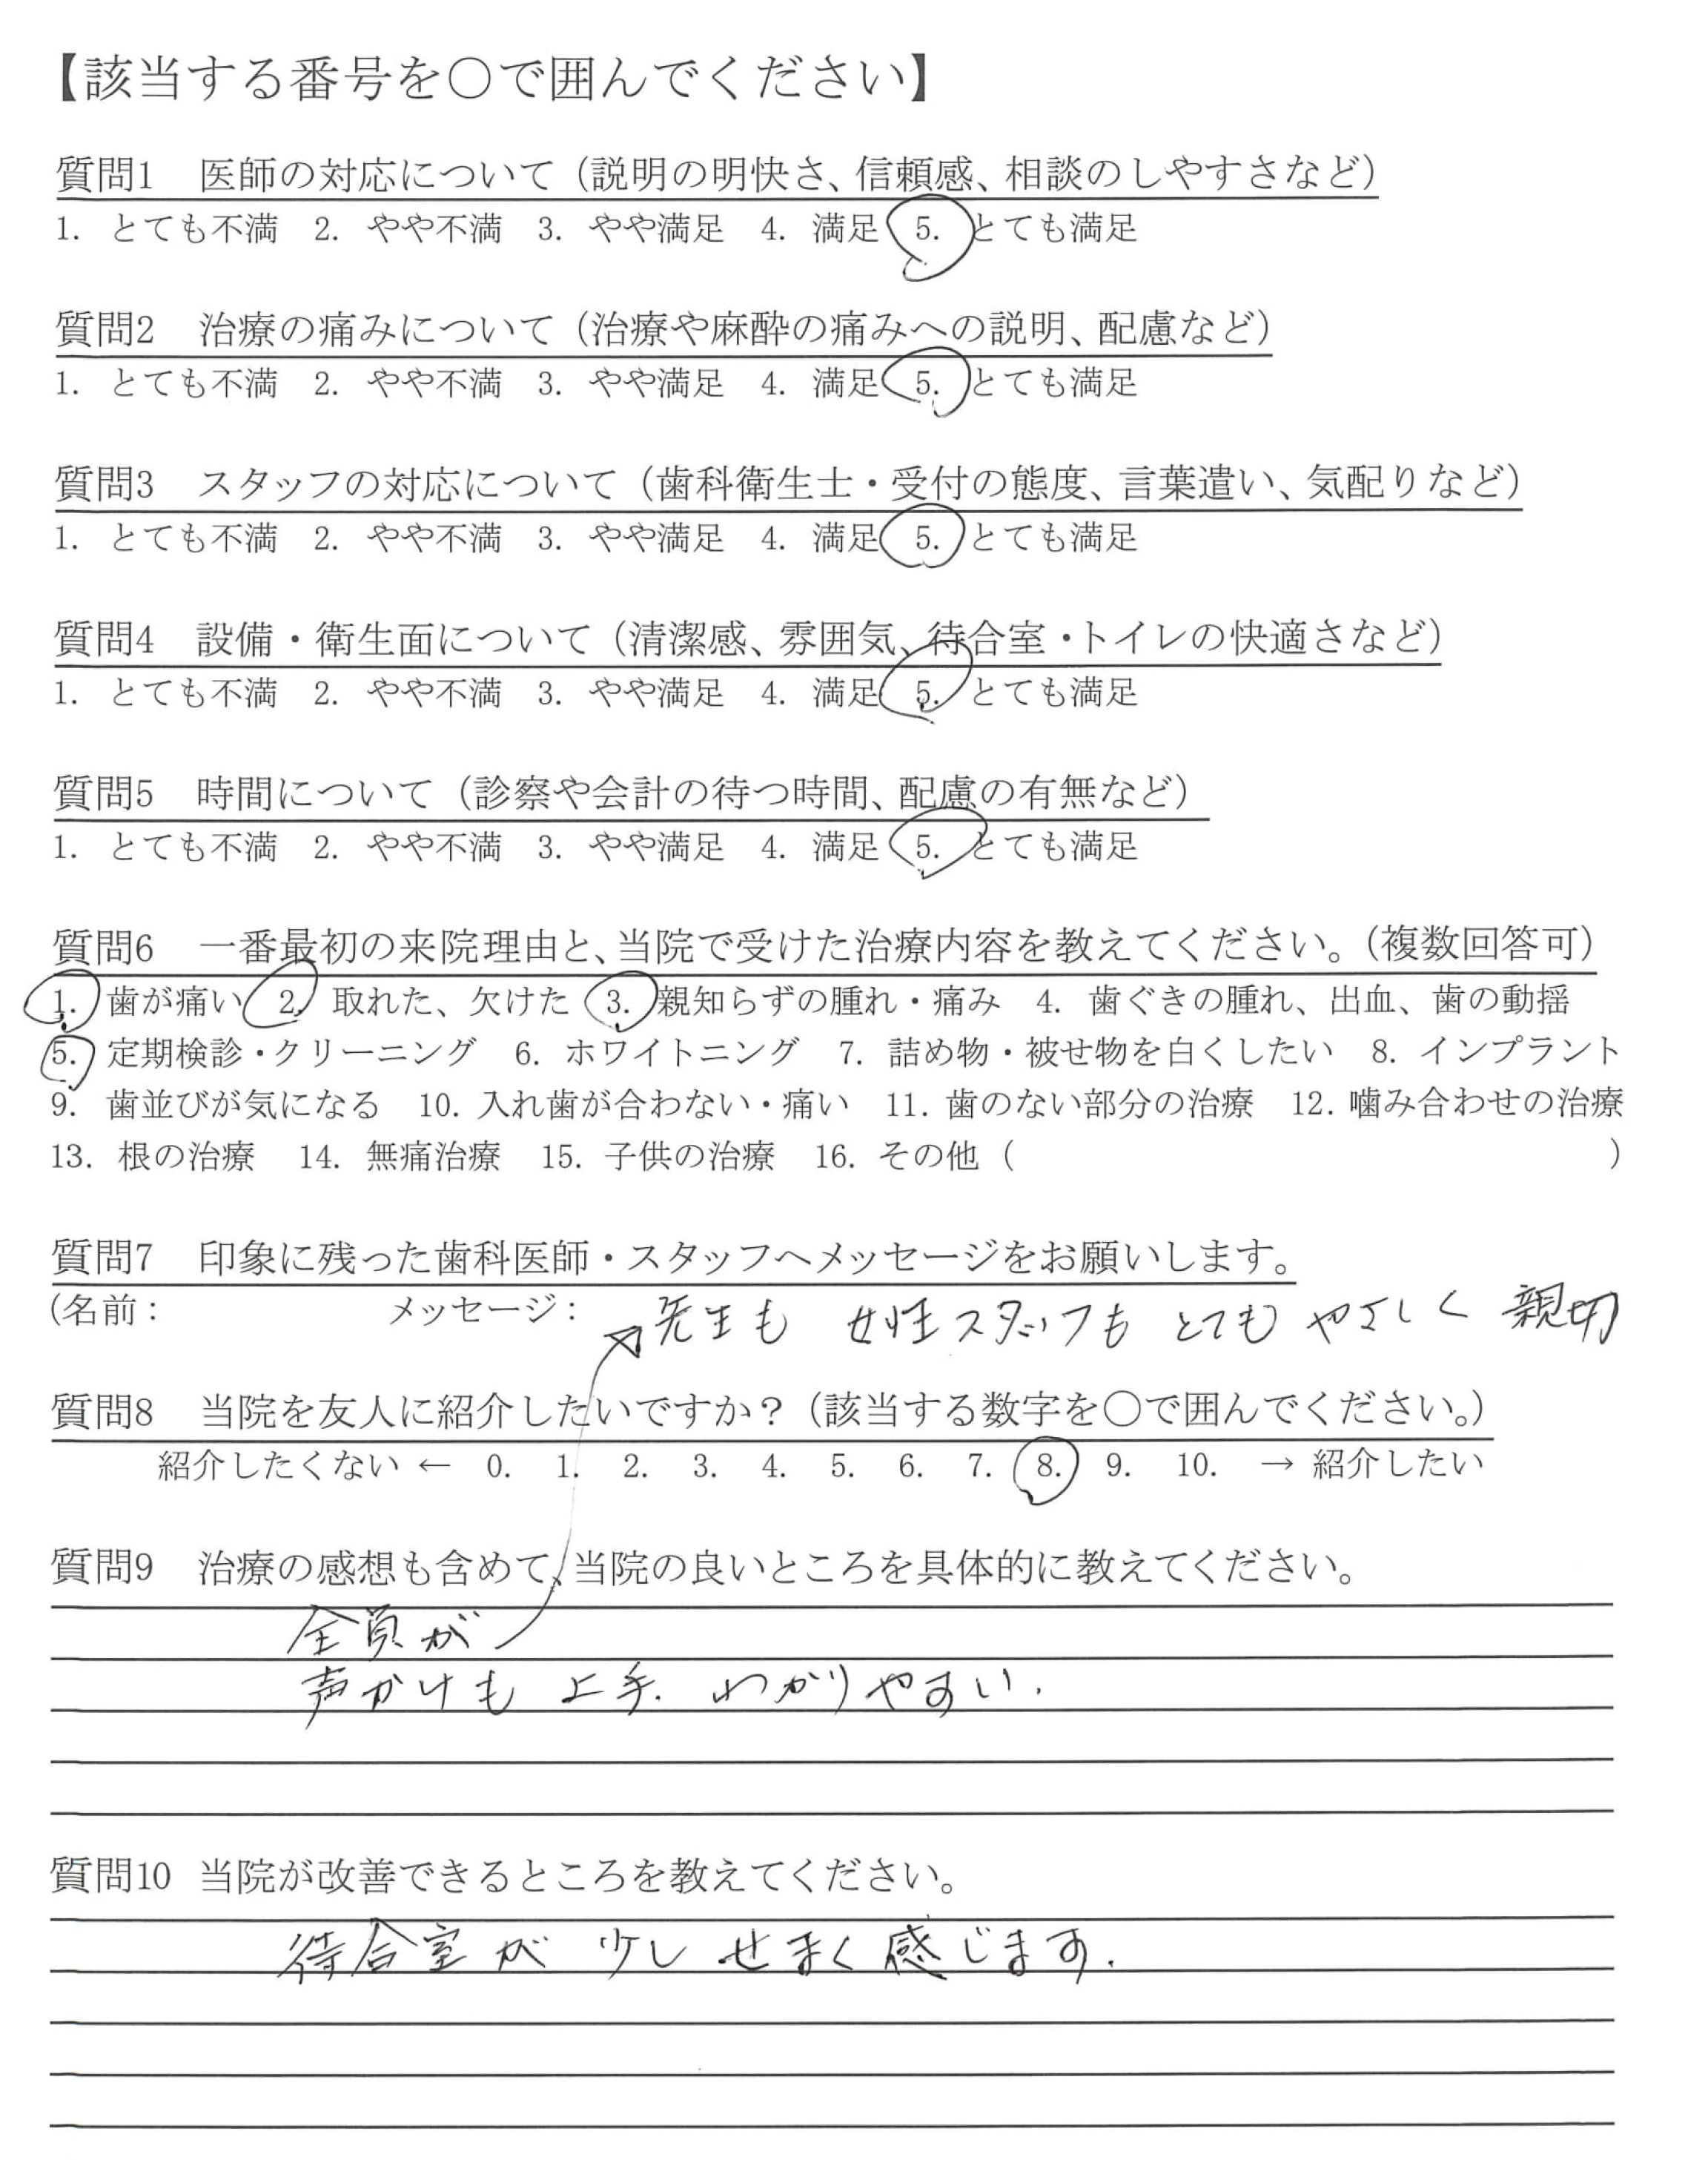 【該当する番号を〇で囲んでください】
質問1　医師の対応について（説明の明快さ、信頼感、相談のしやすさなど）
1. とても不満　2. やや不満　3. やや満足　4. 満足　5. とても満足
質問2　治療の痛みについて（治療や麻酔の痛みへの説明、配慮など）
1. とても不満　2. やや不満　3. やや満足　4. 満足　5. とても満足
質問3　スタッフの対応について（歯科衛生士・受付の態度、言葉遣い、気配りなど）
1. とても不満　2. やや不満　3. やや満足　4. 満足　5. とても満足
質問4　設備・衛生面について（清潔感、雰囲気、待合室・トイレの快適さなど）
1. とても不満　2. やや不満　3. やや満足　4. 満足　5. とても満足
質問5　時間について（診察や会計の待つ時間、配慮の有無など）
1. とても不満　2. やや不満　3. やや満足　4. 満足　5. とても満足
質問6　一番最初の来院理由と、当院で受けた治療内容を教えてください。（複数回答可）
1. 歯が痛い　2. 取れた、欠けた　3. 親知らずの腫れ・痛み　4. 歯ぐきの腫れ、出血、歯の動揺
5. 定期検診・クリーニング　6. ホワイトニング　7. 詰め物・被せ物を白くしたい　8. インプラント
9. 歯並びが気になる　10. 入れ歯が合わない・痛い　11. 歯のない部分の治療　12. 噛み合わせの治療
13. 根の治療　14. 無痛治療　15. 子供の治療　16. その他（　　　）
質問7　印象に残った歯科医師・スタッフへメッセージをお願いします。
（名前：　　　メッセージ：　先生も 女性スタッフも とても やさしく 親切
質問8　当院を友人に紹介したいですか？（該当する数字を〇で囲んでください。）
紹介したくない ← 0. 1. 2. 3. 4. 5. 6. 7. 8. 9. 10. → 紹介したい
質問9　治療の感想も含めて、当院の良いところを具体的に教えてください。
全員が
声かけも 上手. わかりやすい.
質問10 当院が改善できるところを教えてください。
待合室が 少し せまく 感じます.